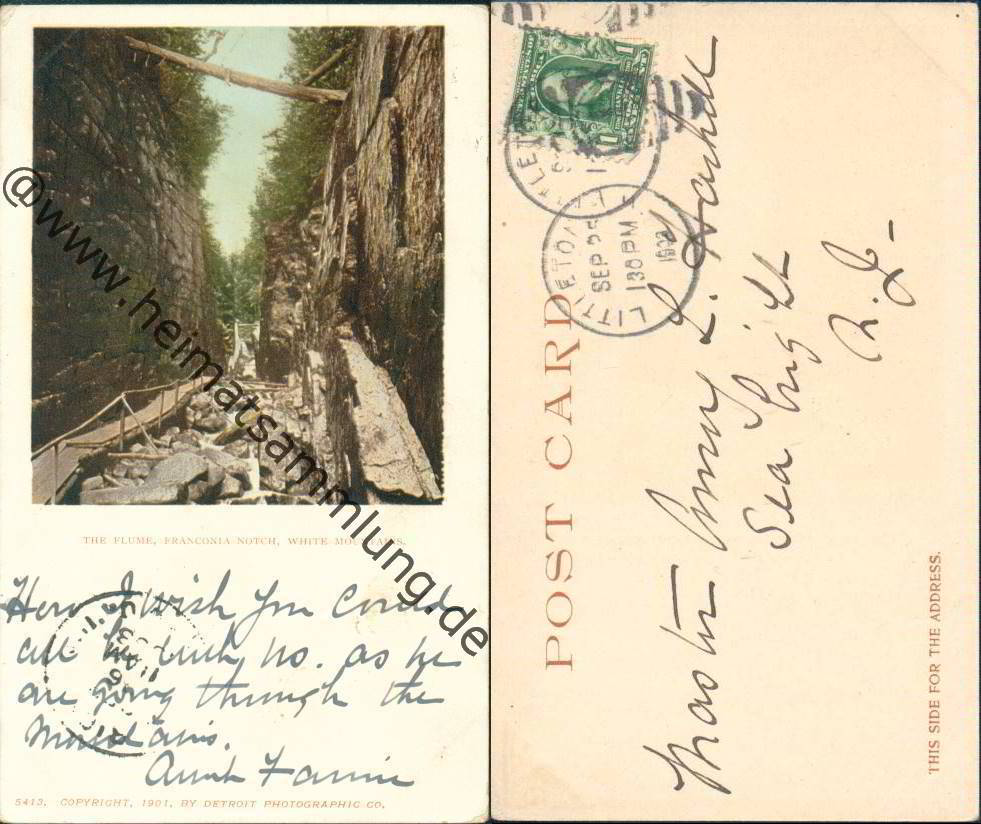 THE FLUME, FRANCONIA NOTCH, WHITE MOUNTAINS.
How I wish you could
all be with us. as we
are going through the
Mountains.
Aunt Fannie
5413. COPYRIGHT, 1901, BY DETROIT PHOTOGRAPHIC CO.
@www.heimatsammlung.de
1
1
LITTLETON
SEP 25
130 PM
POST CARD
Master L.
Sea
N.J.
THIS SIDE FOR THE ADDRESS.